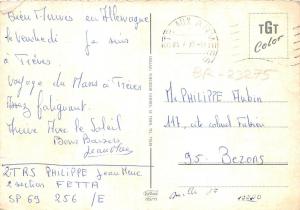 Bien Arrivés en Allemagne
le vendredi je suis
à Trèves
voyage du Mans à Trèves
Assez fatiguant.
Avec le Soleil
Bons Baisers
Jean Marc
2 TRS PHILIPPE Jean Marc
2 section FETTA
SP 69 256 /E
TGT
Color
BR-23275
Mr PHILIPPE Aubin
111, cité colonel Fabien
95-Bezons